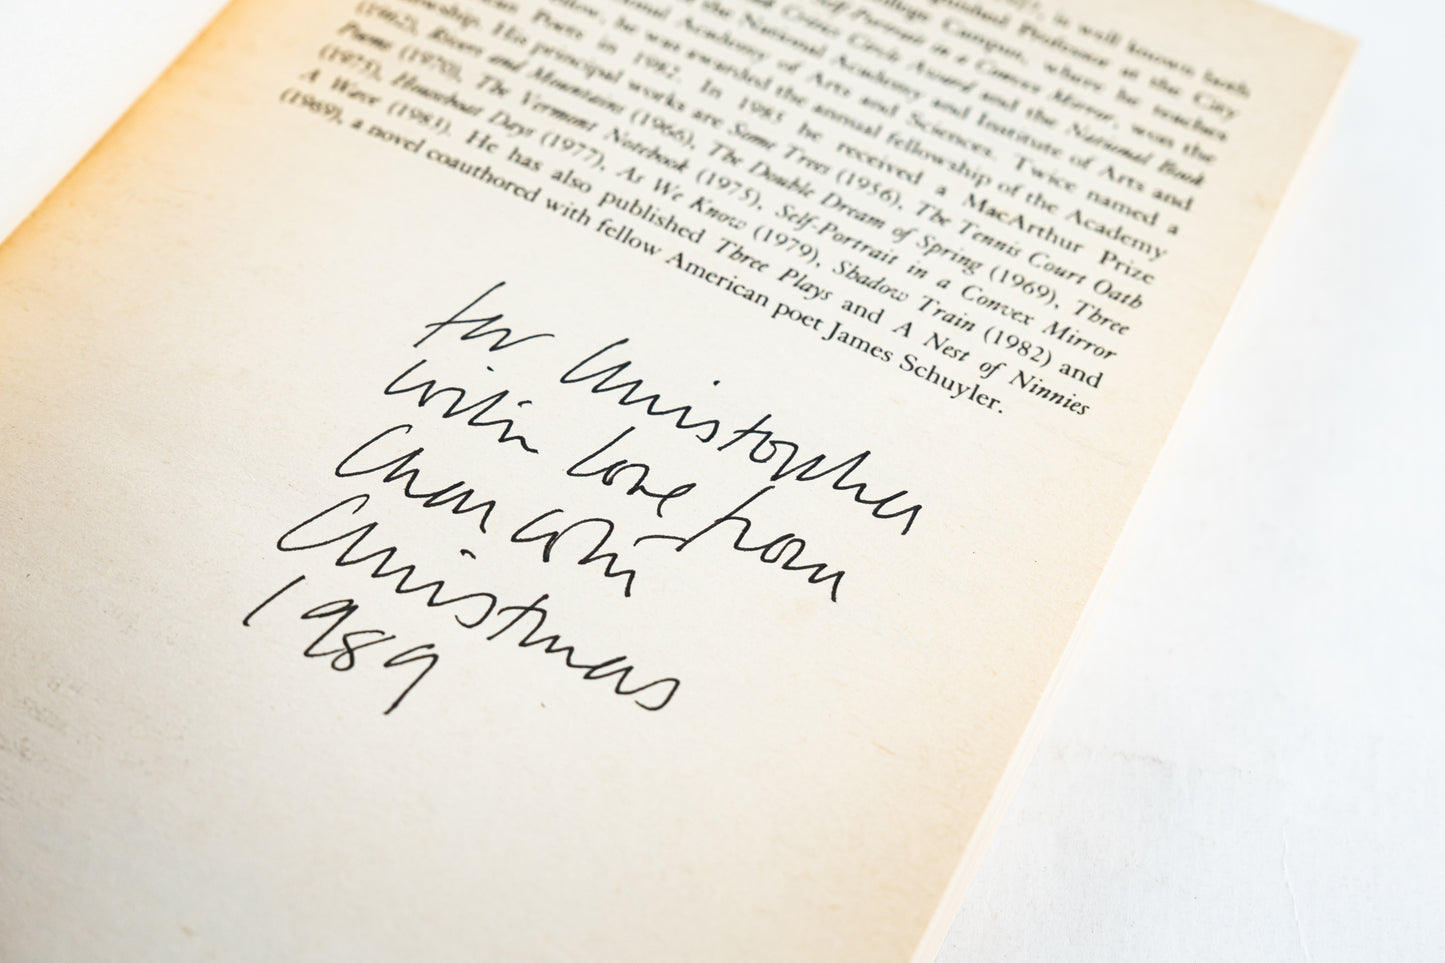 is well known both
Professor at the City
College Campus, where he teaches
Self-Portrait in a Convex Mirror, won the
Critics Circle Award and the National Book
the National Academy and Institute of Arts and
Academy of Arts and Sciences. Twice named a
he was awarded the annual fellowship of the Academy
Poets in 1982. In 1985 he received a MacArthur Prize
His principal works are Some Trees (1956), The Tennis Court Oath
(1962), Rivers and Mountains (1966), The Double Dream of Spring (1969), Three
Poems (1970), The Vermont Notebook (1975), Self-Portrait in a Convex Mirror
(1975), Houseboat Days (1977), As We Know (1979), Shadow Train (1982) and
A Wave (1983). He has also published Three Plays and A Nest of Ninnies
(1969), a novel coauthored with fellow American poet James Schuyler.
for Christopher
with love from
Colin
Christmas
1989